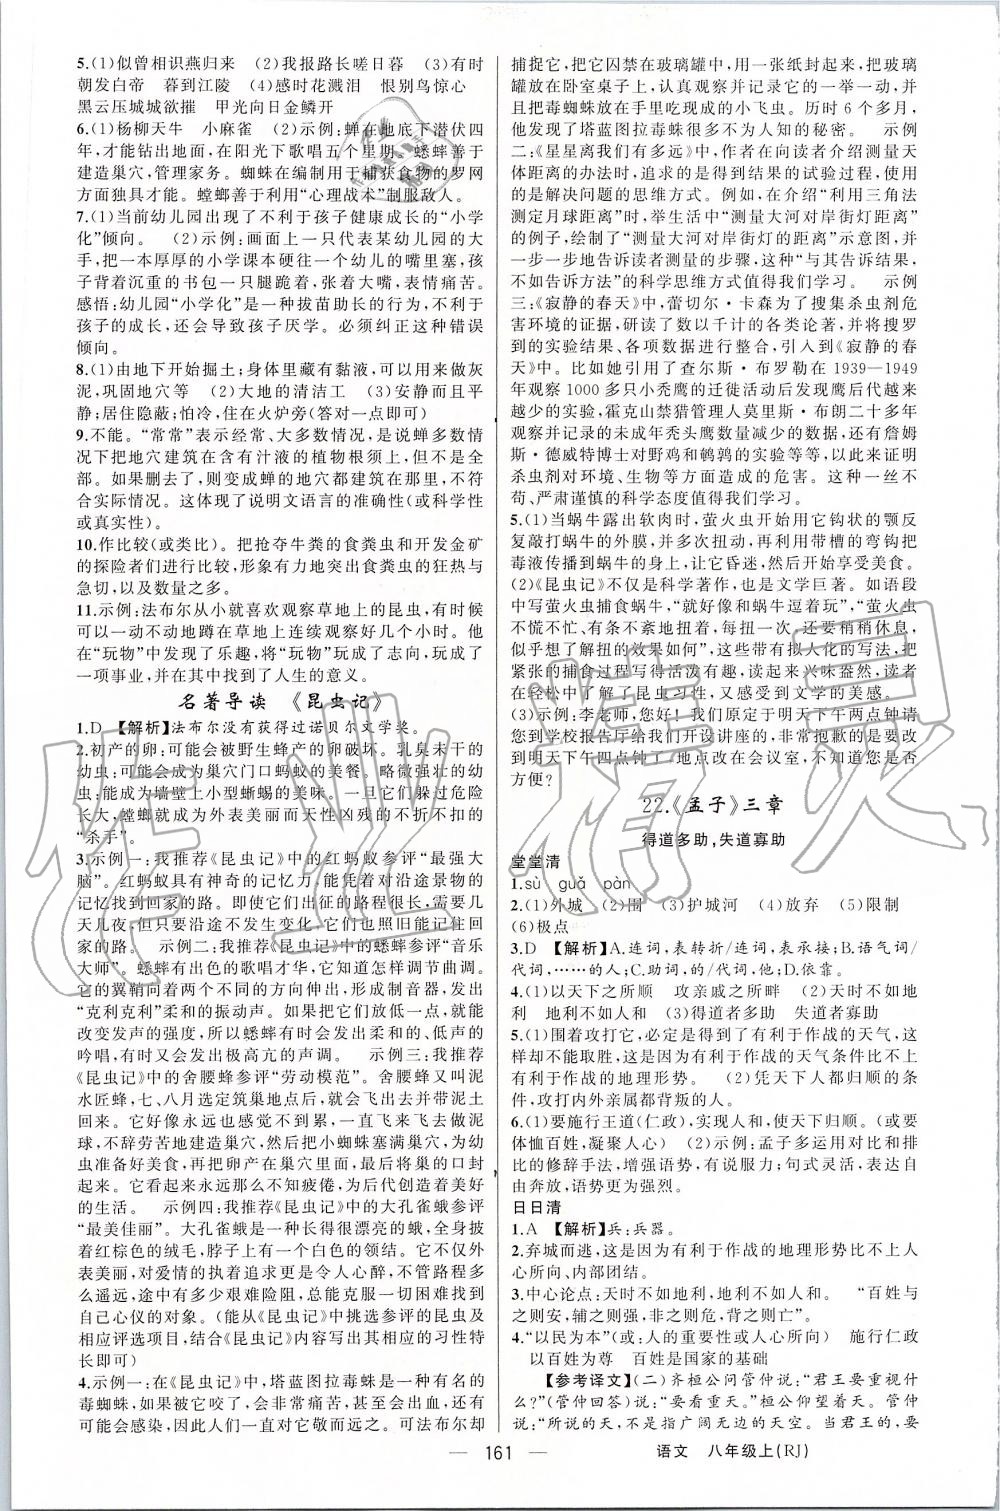 5.(1)似曾相识燕归来　(2)我报路长嗟日暮　(3)有时
朝发白帝　暮到江陵　(4)感时花溅泪　恨别鸟惊心
黑云压城城欲摧　甲光向日金鳞开
6.(1)杨柳天牛　小麻雀　(2)示例:蝉在地底下潜伏四
年,才能钻出地面,在阳光下歌唱五个星期。蟋蟀善于
建造巢穴,管理家务。蜘蛛在编制用于捕获食物的罗网
方面独具才能。螳螂善于利用“心理战术”制服敌人。
7.(1)当前幼儿园出现了不利于孩子健康成长的“小学
化”倾向。　(2)示例:画面上一只代表某幼儿园的大
手,把一本厚厚的小学课本硬往一个幼儿的嘴里塞,孩子
背着沉重的书包一只腿跪着,张着大嘴,表情痛苦。
感悟:幼儿园“小学化”是一种拔苗助长的行为,不利于
孩子的成长,还会导致孩子厌学。必须纠正这种错误
倾向。
8.(1)由地下开始掘土;身体里藏有黏液,可以用来做灰
泥,巩固地穴等　(2)大地的清洁工　(3)安静而且平
静;居住隐蔽;怕冷,住在火炉旁(答对一点即可)
9.不能。“常常”表示经常、大多数情况,是说蝉多数情
况下把地穴建筑在含有汁液的植物根须上,但不是全
部。如果删去了,则变成蝉的地穴都建筑在那里,不符
合实际情况。这体现了说明文语言的准确性(或科学性
或真实性)。
10.作比较(或类比)。把抢夺牛粪的食粪虫和开发金矿
的探险者们进行比较,形象有力地突出食粪虫的狂热与
急切,以及数量之多。
11.示例:法布尔从小就喜欢观察草地上的昆虫,有时候
可以一动不动地蹲在草地上连续观察好几个小时。他
在“玩物”中发现了乐趣,将“玩物”玩成了志向,玩成了
一项事业,并在其中找到了人生的意义。
名著导读　《昆虫记》
1.D　【解析】法布尔没有获得过诺贝尔文学奖。
2.初产的卵:可能会被野生蜂产的卵破坏。乳臭未干的
幼虫:可能会成为巢穴门口蚂蚁的美餐。略微强壮的幼
虫:可能成为墙壁上小型蜥蜴的美味。一旦它们躲过危险
长大,螳螂就成为外表美丽而天性凶残的不折不扣的
“杀手”。
3.示例一:我推荐《昆虫记》中的红蚂蚁参评“最强大
脑”。红蚂蚁具有神奇的记忆力,能凭着对沿途景物的
记忆找到回家的路。即使它们出征的路程很长,需要几
天几夜,但只要沿途不发生变化,它们也依旧能记住回
家的路。　示例二:我推荐《昆虫记》中的蟋蟀参评“音乐
大师”。蟋蟀有出色的歌唱才华,它知道怎样调节曲调。
它的翼鞘向着两个不同的方向伸出,形成制音器,发出
“克利克利”柔和的振动声。如果把它们放低一点,就能
改变发声的强度,所以蟋蟀有时会发出柔和的、低声的
吟唱,有时又会发出极高亢的声调。　示例三:我推荐
《昆虫记》中的舍腰蜂参评“劳动模范”。舍腰蜂又叫泥
水匠蜂,七、八月选定筑巢地点后,就会开始辛勤筑造自
己的住所。它好像永远也感觉不到累,一直飞来飞去做泥
球,不辞劳苦地建造巢穴,用小蜘蛛塞满巢穴,为幼
虫准备好美食,再把卵产在巢穴里面,最后将巢的口封
起来。它看起来永远那么不知疲倦,为后代创造着美好
的生活。　示例四:我推荐《昆虫记》中的大孔雀蛾参评
“最美佳丽”。大孔雀蛾是一种长得很漂亮的蛾,全身披
着红棕色的绒毛,脖子上有一个白色的领结。它不仅外
表美丽,对爱情的执着追求更是令人心醉,不管路程多
么遥远,途中有多少艰难险阻,总能克服一切困难找到
自己心仪的对象。(能从《昆虫记》中挑选参评的昆虫及
相应评选项目;结合《昆虫记》内容写出其相应的习性特
长即可)
4.示例一:在《昆虫记》中,塔蓝图拉毒蛛是一种有名的
毒蜘蛛,如果被它咬了,会全身痉挛,甚至会出血,还有
可能会死亡,因此人们对它敬而远之。可法布尔却
捕捉它,把它囚禁在玻璃罐中,用一张纸封起来,把玻璃
罐放在卧室桌子上,认真观察并记录它的一举一动,并
且把毒蜘蛛放在手里吃现成的小飞虫。历时6个多月,
他发现了塔蓝图拉毒蛛很多不为人知的秘密。　示例
二:《星星离我们有多远》中,作者在向读者介绍测量天
体距离的办法时,追求的是得到结果的试验过程,使用
的是解决问题的思维方式。例如,在介绍“利用三角法
测定月球距离”时,又结合生活中“测量大河对岸街灯距离”
的例子,绘制了“测量大河对岸街灯的距离”示意图,并
一步一步地告诉读者测量的步骤,这种“与其告诉结果,
不如告诉方法”的科学思维方式值得我们学习。　示例
三:《寂静的春天》中,蕾切尔·卡森为了搜集杀虫剂危
害环境的证据,研读了数以千计的各类论著,并将搜罗
到的实验结果、各项数据进行整合,引入到《寂静的春
天》中。比如她引用了查尔斯·布罗勒在1939—1949
年观察1000多只小秃鹰的迁徙活动后发现鹰后代越来
越少的实验,霍克山禁猎管理人莫里斯·布朗二十多年
观察并记录的未成年秃头鹰数量减少的数据,还有詹姆
斯·德威特博士对野鸡和鹌鹑的实验等等,以此来证明
杀虫剂对环境、生物等方面造成的危害。这种一丝不
苟、严肃谨慎的科学态度值得我们学习。
5.(1)当蜗牛露出软肉时,萤火虫开始用它钩状的颚反
复敲打蜗牛的外膜,一切完毕后,再利用带槽的弯钩把
毒液传播到蜗牛的身上,让它昏迷,然后开始享受美食。
(2)《昆虫记》不仅是科学著作,也是文学巨著。如语段
中写萤火虫捕食蜗牛,“就好像和蜗牛逗着玩”,“萤火虫
不慌不忙、有条不紊地扭着,每扭一次,还要稍稍休息,
似乎想了解扭的效果如何”,这些都带有拟人化的写法,把
紧张的捕食过程写得生动有趣,读起来兴味盎然,读者
在轻松中了解了昆虫习性,又感受到文学的美感。
(3)示例:李老师,您好!我们原定于明天下午两点钟请
您到学校报告厅给我们开设讲座的,非常抱歉的是要改
到明天下午四点钟了,地点改在会议室,不知道您是否
方便?
22.《孟子》三章
得道多助,失道寡助
堂堂清
1.sù　guǎ　pàn
2.(1)外城　(2)围　(3)护城河　(4)放弃　(5)限制
(6)极点
3.D　【解析】A.连词,表转折/连词,表承接;B.语气词/
代词,……的人;C.助词,的/代词,他;D.依靠。
4.(1)以天下之所顺　攻亲戚之所畔　(2)天时不如地
利　地利不如人和　(3)得道者多助　失道者寡助
5.(1)围着攻打它,必定是得到了有利于作战的天气,这
样却不能取胜,这是因为有利于作战的天气条件比不上
有利于作战的地理形势。　(2)凭天下人都归顺的条件,
攻打内外亲戚都背叛的人。
6.(1)要施行王道(仁政),实现人和,使天下归顺。(或要
体恤百姓,凝聚人心)　(2)示例:孟子多运用对比和排
比的修辞手法,增强语势,有说服力;句式灵活,表达自
由奔放,语势更为强烈。
日日清
1.A　【解析】兵:兵器。
2.弃城而逃,这是因为有利于作战的地理形势比不上人
心所向、内部团结。
3.中心论点:天时不如地利,地利不如人和。　“百姓与
之则安,辅之则强,非之则危,背之则亡”。
4.“以民为本”(或:人的重要性或人心所向)　施行仁政
以百姓为尊　百姓是国家的基础
【参考译文】(二)齐桓公问管仲说:“君王要重视什
么?”(管仲回答)说:“要重视天。”桓公仰望着天。管仲
说:“所说的天,不是指广阔无边的天空。当君王的,要
161
语文　八年级上(RJ)